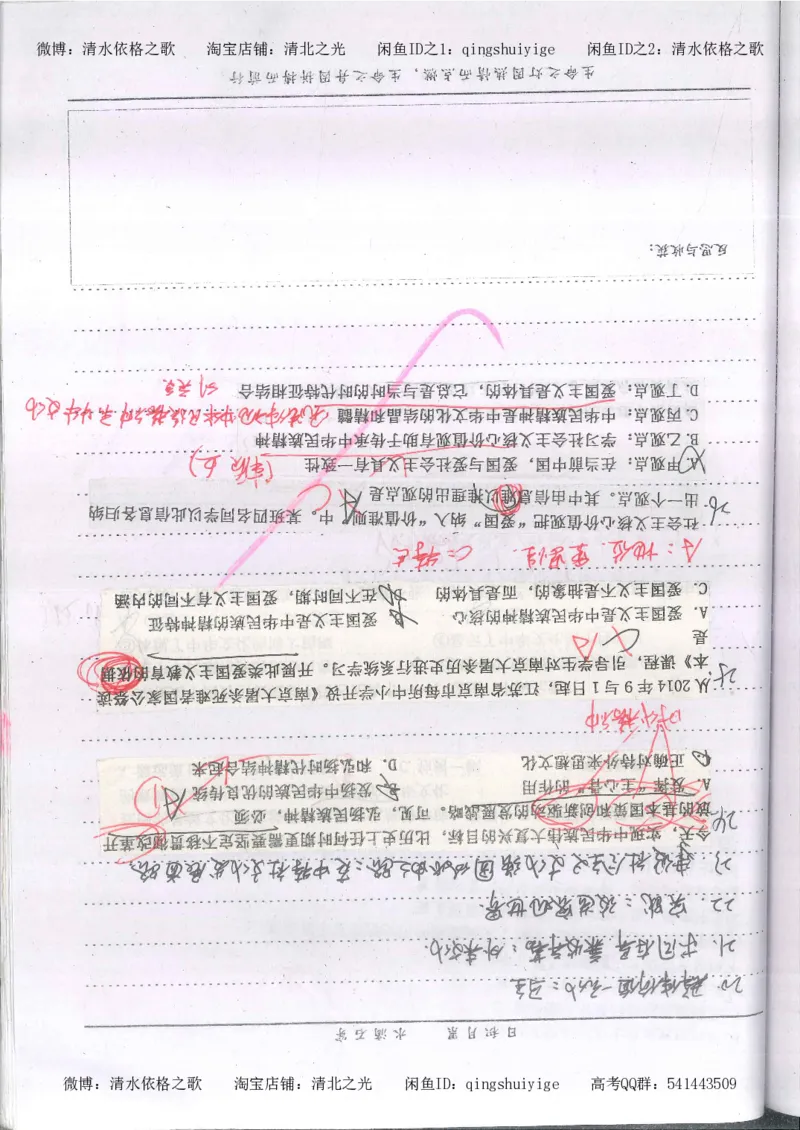 微博：清水依格之歌 淘宝店铺：清北之光 闲鱼ID之1：qingshuiyige 闲鱼ID之2：清水依格之歌
日积月累 水滴石穿
21. 求同存异 兼收并蓄：外来文化
22. 实践：改造客观世界
24
今天，实现中华民族伟大复兴的目标，比历史上任何时期更需要坚定不移贯彻改革开
放的基本国策和创新驱动的发展战略。可见，弘扬民族精神，必须
A. 发挥“主心骨”的作用 B. 发扬中华民族的优良传统
C. 正确对待外来思想文化 D. 和弘扬时代精神结合起来
D
时代精神
25
从2014年9月1日起，江苏省南京市每所中小学开设《南京大屠杀死难者国家公祭读
本》课程，引导学生对南京大屠杀历史进行系统学习。开展此类爱国主义教育的依据
是
A
A. 爱国主义是中华民族精神的核心 B 爱国主义是中华民族的精神特征
C. 爱国主义不是抽象的，而是具体的 D 在不同时期，爱国主义有不同的内涵
A：地位、重要性. C：特点
26
社会主义核心价值观把“爱国”纳入“价值准则”中。某班四名同学以此信息各归纳
出一个观点。其中由信息难以推理出的观点是
C
A. 甲观点：在当前中国，爱国与爱社会主义具有一致性
B. 乙观点：学习社会主义核心价值观有助于传承中华民族精神
C. 丙观点：中华民族精神是中华文化的结晶和精髓
D. 丁观点：爱国主义是具体的，它总是与当时的时代特征相结合
反思与收获：
生命之灯因热情而点燃，生命之舟因拼搏而前行
微博：清水依格之歌 淘宝店铺：清北之光 闲鱼ID：qingshuiyige 高考QQ群：541443509